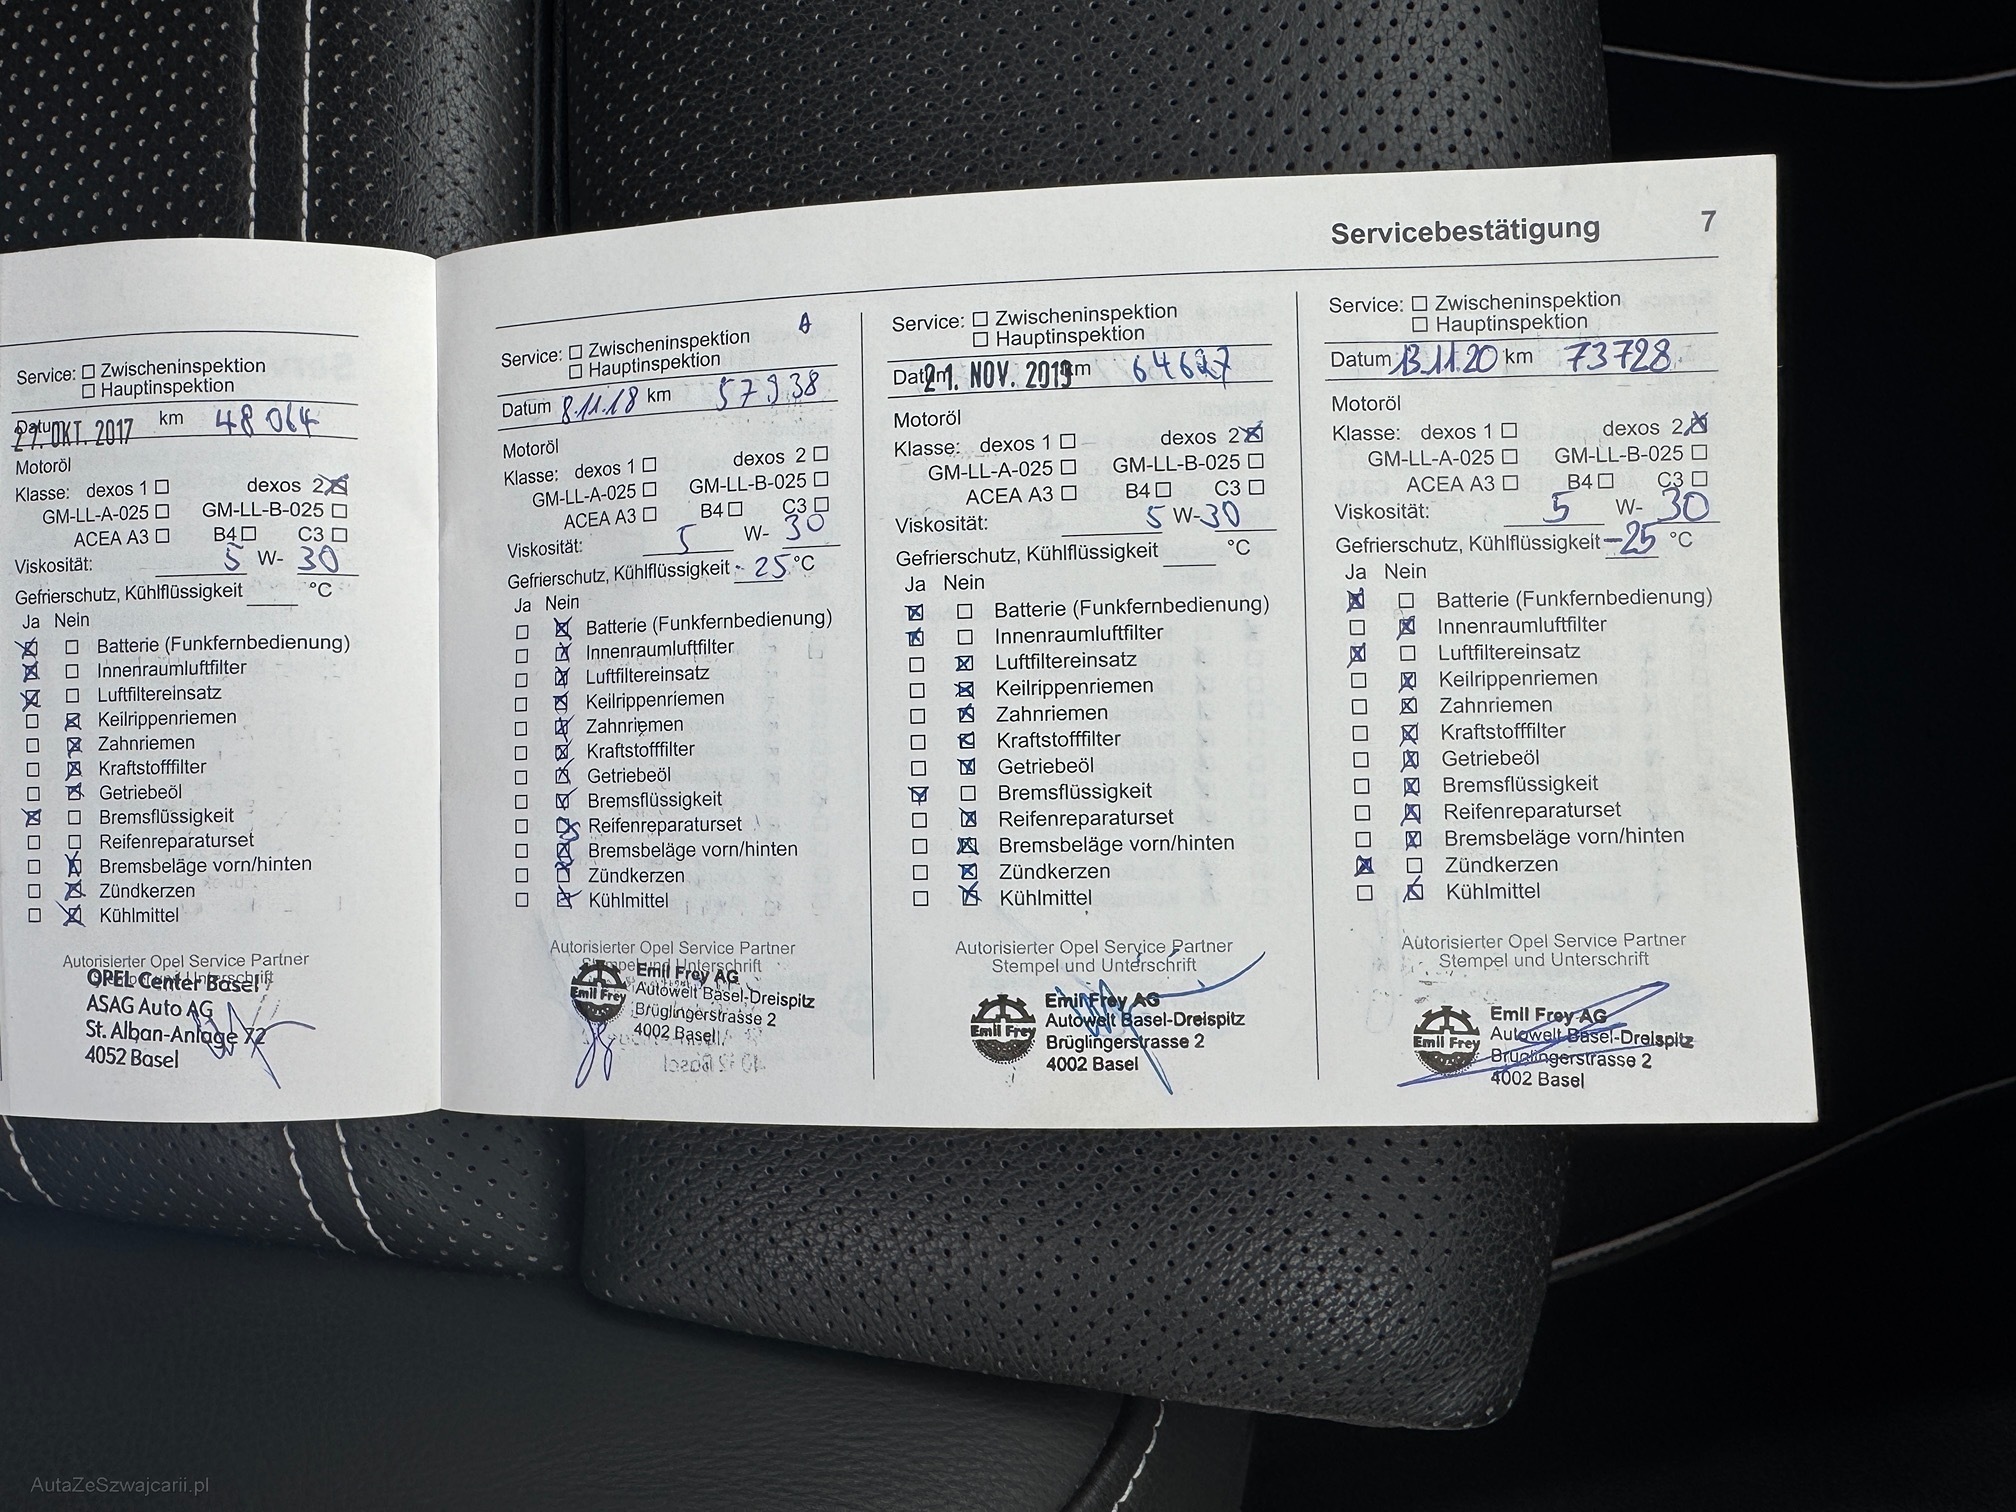 Servicebestätigung 7
Service: Zwischeninspektion
Hauptinspektion
Datum 27. OKT. 2017 km 48 064
Motoröl
Klasse: dexos 1 dexos 2
GM-LL-A-025 GM-LL-B-025
ACEA A3 B4 C3
Viskosität: 5 W- 30
Gefrierschutz, Kühlflüssigkeit °C
Ja Nein
Batterie (Funkfernbedienung)
Innenraumluftfilter
Luftfiltereinsatz
Keilrippenriemen
Zahnriemen
Kraftstofffilter
Getriebeöl
Bremsflüssigkeit
Reifenreparaturset
Bremsbeläge vorn/hinten
Zündkerzen
Kühlmittel
Autorisierter Opel Service Partner
Stempel und Unterschrift
OPEL Center Basel
ASAG Auto AG
St. Alban-Anlage 72
4052 Basel
A
Service: Zwischeninspektion
Hauptinspektion
Datum 8.11.18 km 57938
Motoröl
Klasse: dexos 1 dexos 2
GM-LL-A-025 GM-LL-B-025
ACEA A3 B4 C3
Viskosität: 5 W- 30
Gefrierschutz, Kühlflüssigkeit - 25 °C
Ja Nein
Batterie (Funkfernbedienung)
Innenraumluftfilter
Luftfiltereinsatz
Keilrippenriemen
Zahnriemen
Kraftstofffilter
Getriebeöl
Bremsflüssigkeit
Reifenreparaturset
Bremsbeläge vorn/hinten
Zündkerzen
Kühlmittel
Autorisierter Opel Service Partner
Stempel und Unterschrift
Emil Frey
Emil Frey AG
Autowelt Basel-Dreispitz
Brüglingerstrasse 2
4002 Basel
Service: Zwischeninspektion
Hauptinspektion
Datum 21. NOV. 2019 km 64627
Motoröl
Klasse: dexos 1 dexos 2
GM-LL-A-025 GM-LL-B-025
ACEA A3 B4 C3
Viskosität: 5 W- 30
Gefrierschutz, Kühlflüssigkeit °C
Ja Nein
Batterie (Funkfernbedienung)
Innenraumluftfilter
Luftfiltereinsatz
Keilrippenriemen
Zahnriemen
Kraftstofffilter
Getriebeöl
Bremsflüssigkeit
Reifenreparaturset
Bremsbeläge vorn/hinten
Zündkerzen
Kühlmittel
Autorisierter Opel Service Partner
Stempel und Unterschrift
Emil Frey
Emil Frey AG
Autowelt Basel-Dreispitz
Brüglingerstrasse 2
4002 Basel
Service: Zwischeninspektion
Hauptinspektion
Datum 13.11.20 km 73728
Motoröl
Klasse: dexos 1 dexos 2
GM-LL-A-025 GM-LL-B-025
ACEA A3 B4 C3
Viskosität: 5 W- 30
Gefrierschutz, Kühlflüssigkeit -25 °C
Ja Nein
Batterie (Funkfernbedienung)
Innenraumluftfilter
Luftfiltereinsatz
Keilrippenriemen
Zahnriemen
Kraftstofffilter
Getriebeöl
Bremsflüssigkeit
Reifenreparaturset
Bremsbeläge vorn/hinten
Zündkerzen
Kühlmittel
Autorisierter Opel Service Partner
Stempel und Unterschrift
Emil Frey
Emil Frey AG
Autowelt Basel-Dreispitz
Brüglingerstrasse 2
4002 Basel
AutaZeSzwajcarii.pl